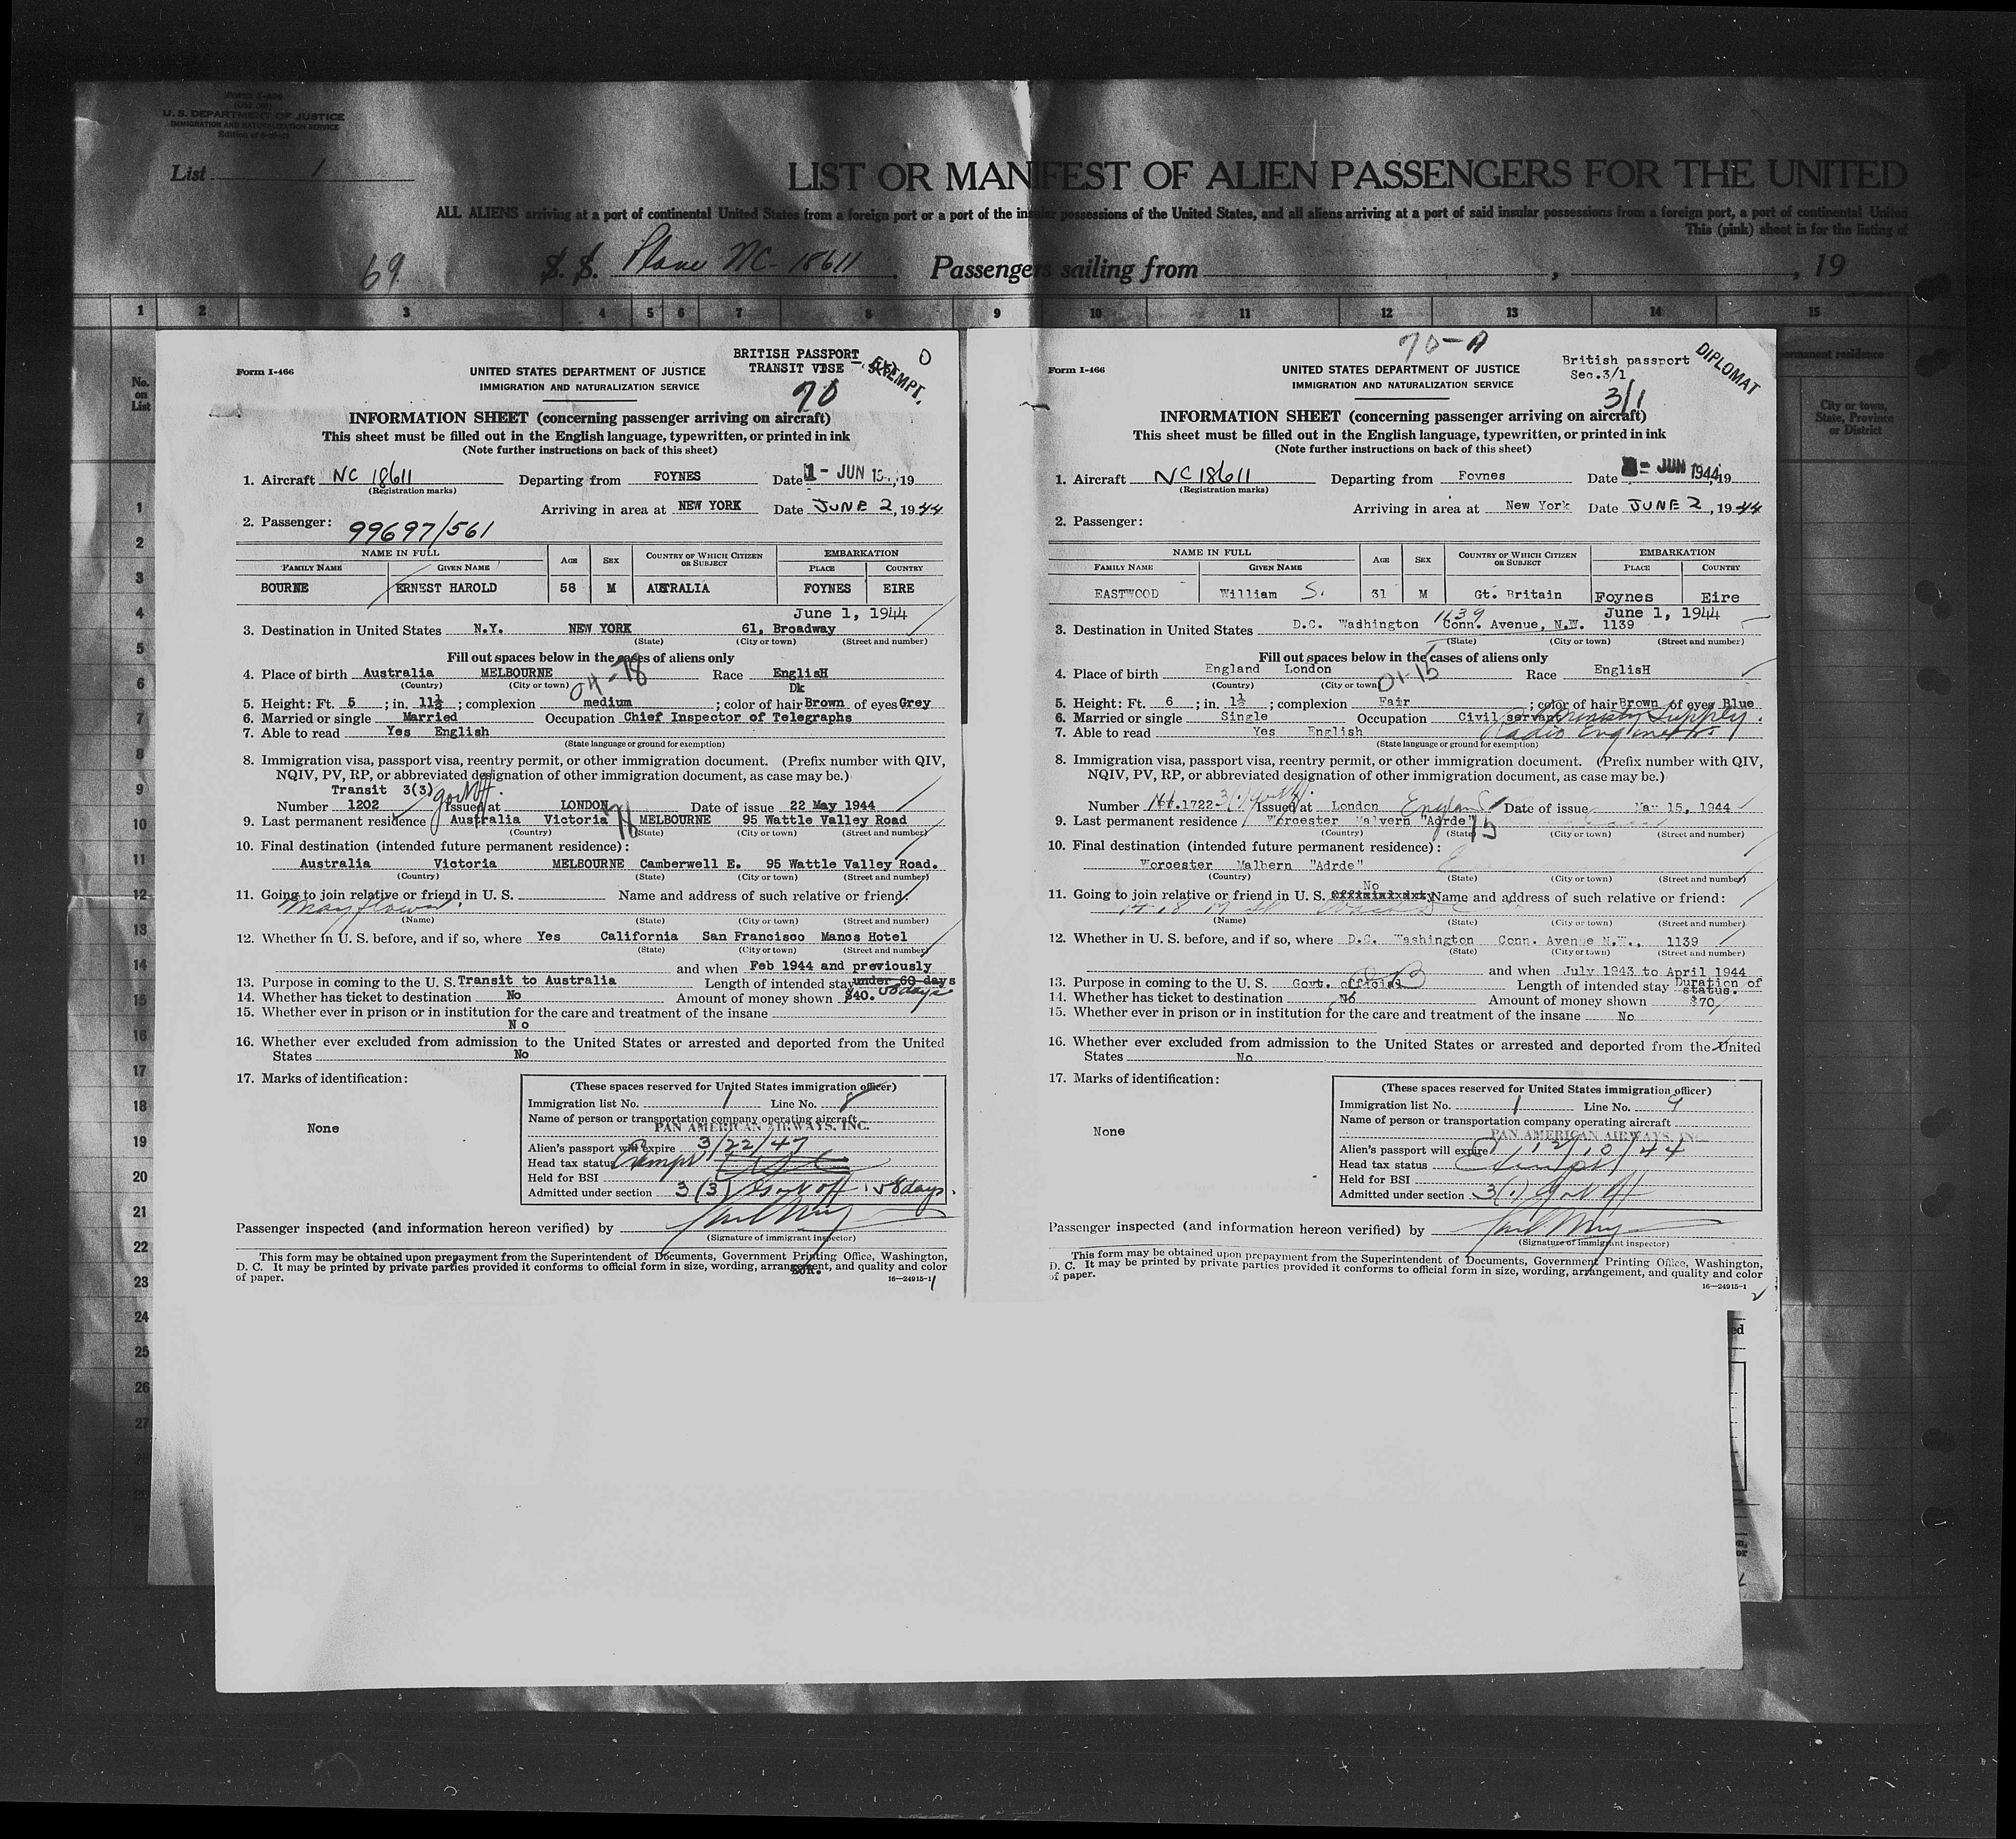 Form I-466
U. S. DEPARTMENT OF JUSTICE
IMMIGRATION AND NATURALIZATION SERVICE
List 1
LIST OR MANIFEST OF ALIEN PASSENGERS FOR THE UNITED
ALL ALIENS arriving at a port of continental United States from a foreign port or a port of the insular possessions of the United States, and all aliens arriving at a port of said insular possessions from a foreign port, a port of continental United
This (pink) sheet is for the listing of
69 S. S. Plane NC-18611 Passengers sailing from , , 19
1 2 3 4 5 6 7 8 9 10 11 12 13 14 15
No. on List
permanent residence
City or town, State, Province or District
BRITISH PASSPORT
TRANSIT VISE
EXEMPT.
0
Form I-466
UNITED STATES DEPARTMENT OF JUSTICE
IMMIGRATION AND NATURALIZATION SERVICE
70
INFORMATION SHEET (concerning passenger arriving on aircraft)
This sheet must be filled out in the English language, typewritten, or printed in ink
(Note further instructions on back of this sheet)
1. Aircraft NC 18611 Departing from FOYNES Date 1 - JUN 19
(Registration marks)
Arriving in area at NEW YORK Date JUNE 2, 1944
2. Passenger: 99697/561
NAME IN FULL AGE SEX COUNTRY OF WHICH CITIZEN OR SUBJECT EMBARKATION
FAMILY NAME GIVEN NAME PLACE COUNTRY
BOURNE ERNEST HAROLD 58 M AUSTRALIA FOYNES EIRE
June 1, 1944
3. Destination in United States N.Y. NEW YORK 61, Broadway
(State) (City or town) (Street and number)
Fill out spaces below in the cases of aliens only
4. Place of birth Australia MELBOURNE Race EnglisH
(Country) (City or town) 04-78
Dk
5. Height: Ft. 5 ; in. 11½ ; complexion medium ; color of hair Brown of eyes Grey
6. Married or single Married Occupation Chief Inspector of Telegraphs
7. Able to read Yes English
(State language or ground for exemption)
8. Immigration visa, passport visa, reentry permit, or other immigration document. (Prefix number with QIV,
NQIV, PV, RP, or abbreviated designation of other immigration document, as case may be.)
Transit 3(3)
Number 1202 Issued at LONDON Date of issue 22 May 1944
9. Last permanent residence Australia Victoria MELBOURNE 95 Wattle Valley Road
(Country) (State) (City or town) (Street and number)
10. Final destination (intended future permanent residence):
Australia Victoria MELBOURNE Camberwell E. 95 Wattle Valley Road.
(Country) (State) (City or town) (Street and number)
11. Going to join relative or friend in U. S. Name and address of such relative or friend:
Mayflower
(Name) (State) (City or town) (Street and number)
12. Whether in U. S. before, and if so, where Yes California San Francisco Manos Hotel
(State) (City or town) (Street and number)
and when Feb 1944 and previously
13. Purpose in coming to the U. S. Transit to Australia Length of intended stay under 60 days
58 days
14. Whether has ticket to destination No Amount of money shown $40.
15. Whether ever in prison or in institution for the care and treatment of the insane
No
16. Whether ever excluded from admission to the United States or arrested and deported from the United
States No
17. Marks of identification:
None
(These spaces reserved for United States immigration officer)
Immigration list No. 1 Line No. 8
Name of person or transportation company operating aircraft
PAN AMERICAN AIRWAYS, INC.
Alien's passport will expire 3/22/47
Head tax status Exempt
Held for BSI
Admitted under section 3(3) Govt Off 58 days.
Passenger inspected (and information hereon verified) by
(Signature of immigrant inspector)
This form may be obtained upon prepayment from the Superintendent of Documents, Government Printing Office, Washington,
D. C. It may be printed by private parties provided it conforms to official form in size, wording, arrangement, and quality and color
of paper.
16—24915-1
70-A
British passport
Sec.3/1
DIPLOMAT
3/1
Form I-466
UNITED STATES DEPARTMENT OF JUSTICE
IMMIGRATION AND NATURALIZATION SERVICE
INFORMATION SHEET (concerning passenger arriving on aircraft)
This sheet must be filled out in the English language, typewritten, or printed in ink
(Note further instructions on back of this sheet)
1. Aircraft NC18611 Departing from Foynes Date JUN 1944, 19
(Registration marks)
Arriving in area at New York Date JUNE 2, 1944
2. Passenger:
NAME IN FULL AGE SEX COUNTRY OF WHICH CITIZEN OR SUBJECT EMBARKATION
FAMILY NAME GIVEN NAME PLACE COUNTRY
EASTWOOD William S. 31 M Gt. Britain Foynes Eire
June 1, 1944
1139
3. Destination in United States D.C. Washington Conn. Avenue, N.W. 1139
(State) (City or town) (Street and number)
Fill out spaces below in the cases of aliens only
4. Place of birth England London Race EnglisH
(Country) (City or town) 01-15
5. Height: Ft. 6 ; in. 1½ ; complexion Fair ; color of hair Brown of eyes Blue
6. Married or single Single Occupation Civil servant Ministry Supply.
7. Able to read Yes English Radio Engineer
(State language or ground for exemption)
8. Immigration visa, passport visa, reentry permit, or other immigration document. (Prefix number with QIV,
NQIV, PV, RP, or abbreviated designation of other immigration document, as case may be.)
Number 1722 Issued at London England Date of issue May 15, 1944
9. Last permanent residence Worcester Malvern "Adrde" 15
(Country) (State) (City or town) (Street and number)
10. Final destination (intended future permanent residence):
Worcester Malbern "Adrde"
(Country) (State) (City or town) (Street and number)
No
11. Going to join relative or friend in U. S. Name and address of such relative or friend:
(Name) (State) (City or town) (Street and number)
12. Whether in U. S. before, and if so, where D.C. Washington Conn. Avenue N.W., 1139
(State) (City or town) (Street and number)
and when July 1943 to April 1944
13. Purpose in coming to the U. S. Govt. official Length of intended stay Duration of status.
14. Whether has ticket to destination No Amount of money shown $70
15. Whether ever in prison or in institution for the care and treatment of the insane No
16. Whether ever excluded from admission to the United States or arrested and deported from the United
States No
17. Marks of identification:
None
(These spaces reserved for United States immigration officer)
Immigration list No. 1 Line No. 9
Name of person or transportation company operating aircraft
PAN AMERICAN AIRWAYS, INC.
Alien's passport will expire 12/13/44
Head tax status Exempt
Held for BSI
Admitted under section 3(1) Govt Off
Passenger inspected (and information hereon verified) by
(Signature of immigrant inspector)
This form may be obtained upon prepayment from the Superintendent of Documents, Government Printing Office, Washington,
D. C. It may be printed by private parties provided it conforms to official form in size, wording, arrangement, and quality and color
of paper.
16—24915-1
1
2
3
4
5
6
7
8
9
10
11
12
13
14
15
16
17
18
19
20
21
22
23
24
25
26
27